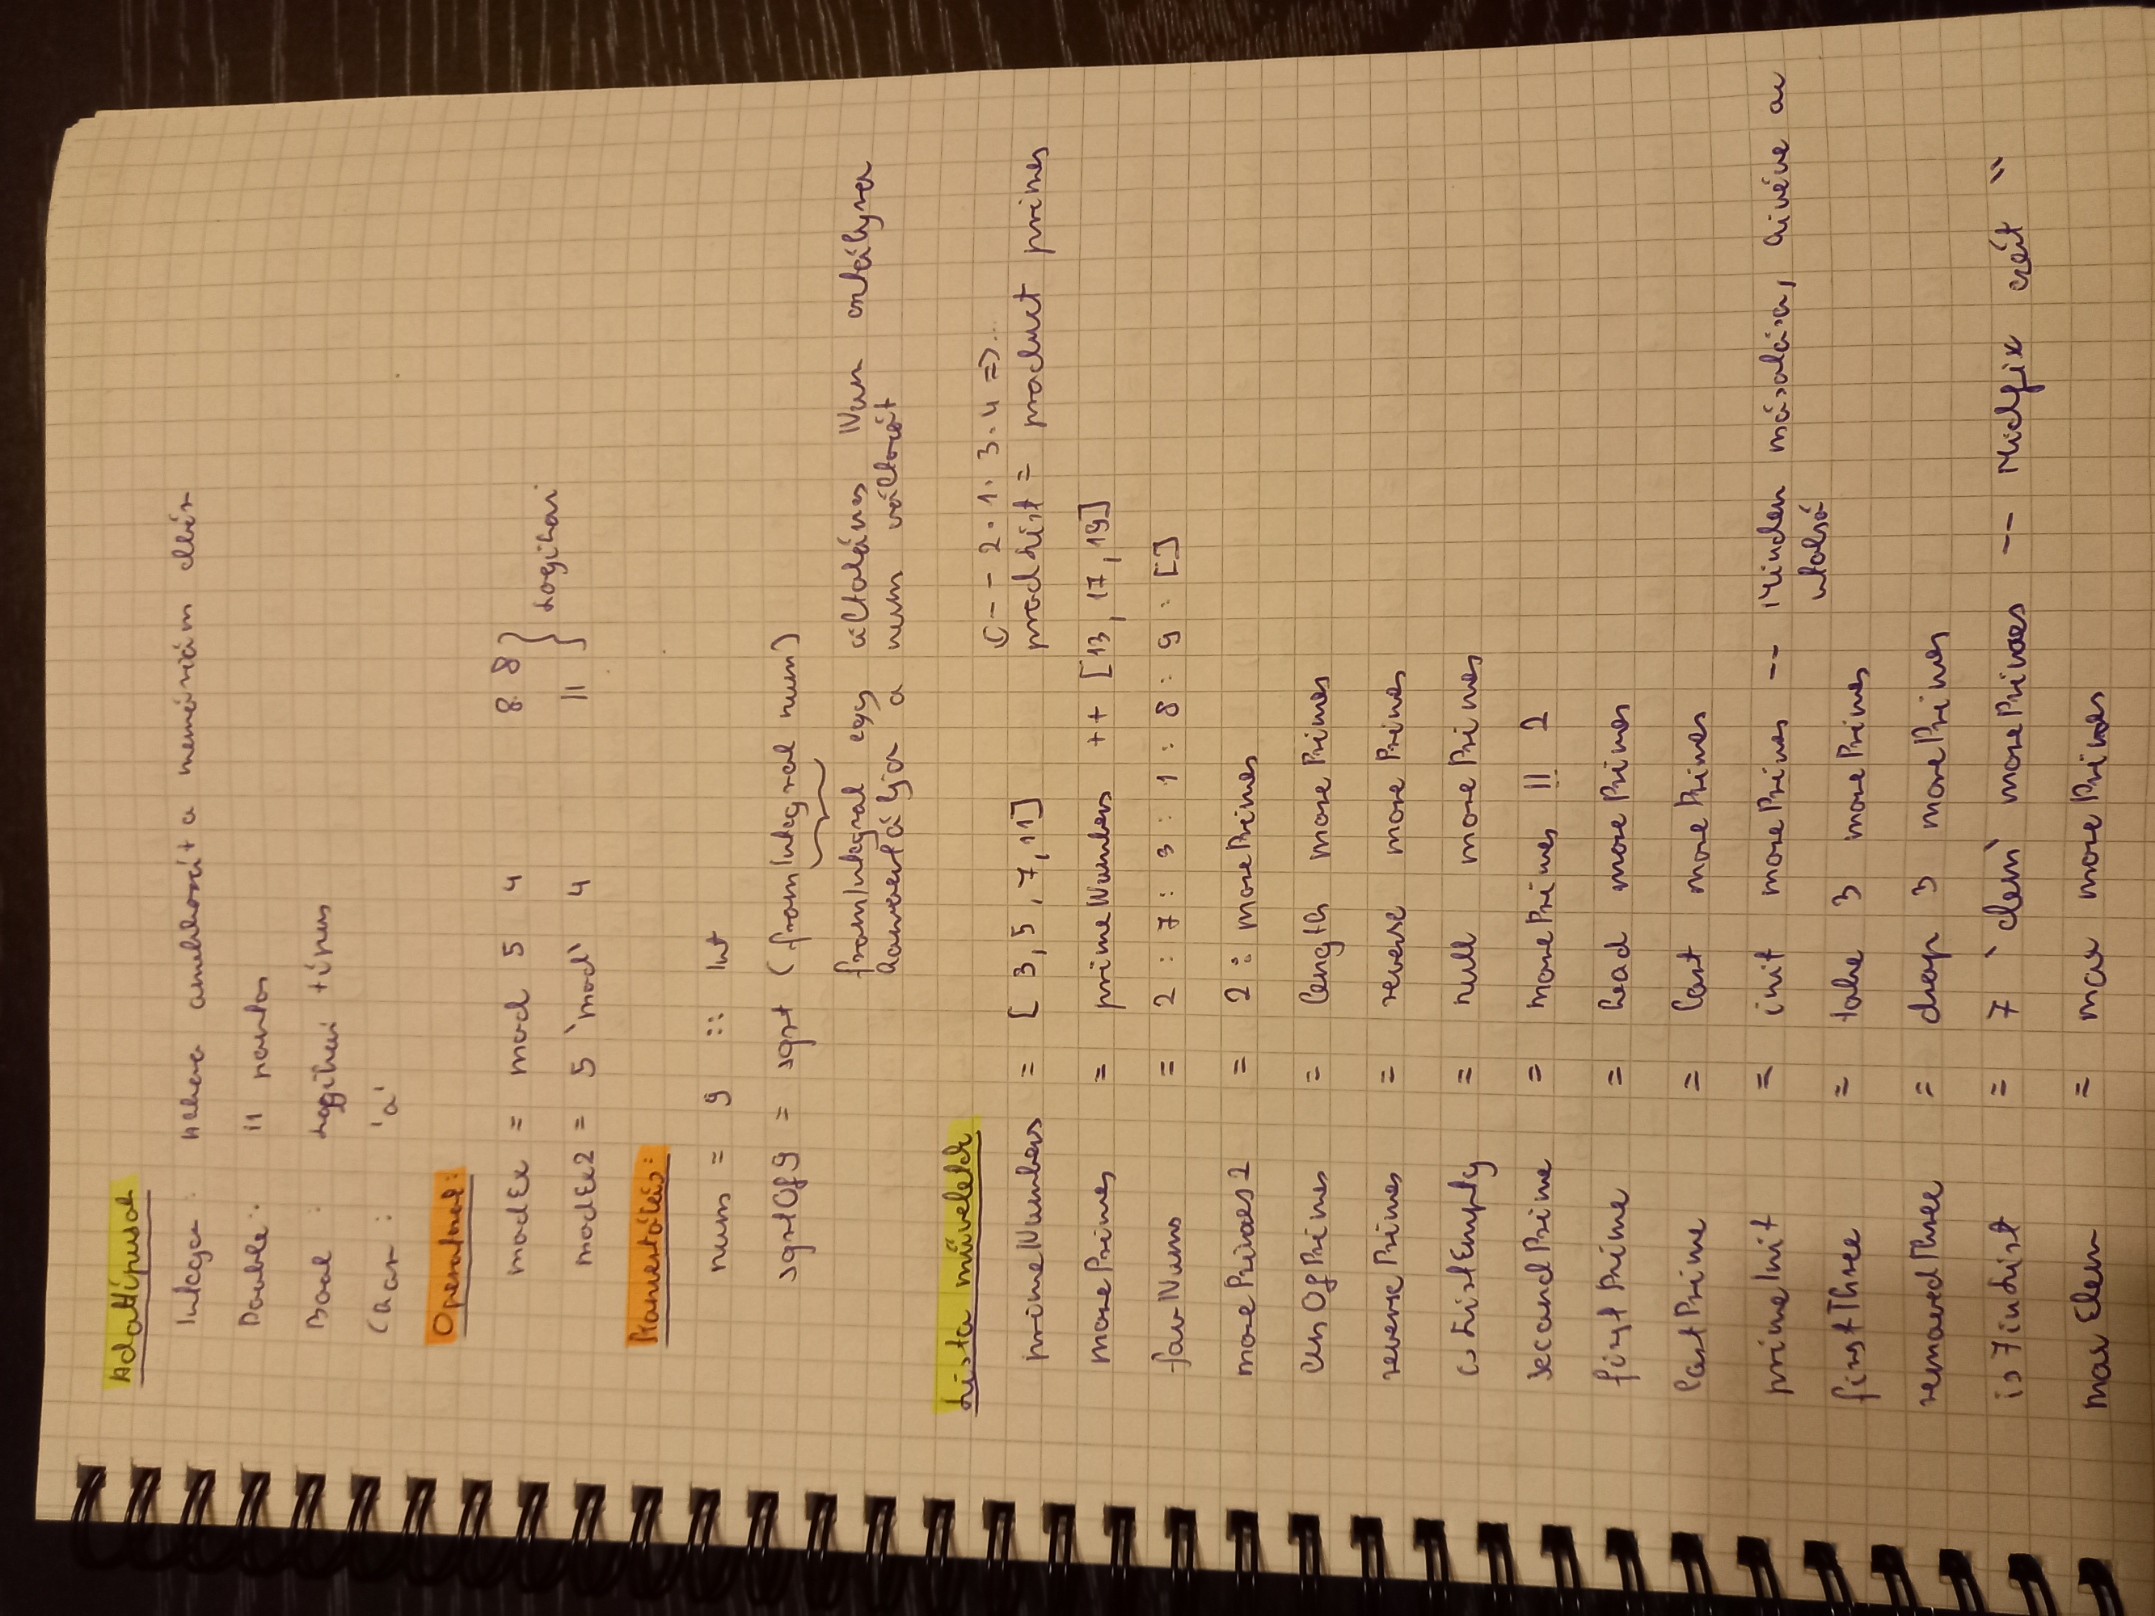 Adattípusok
Integer : Akkora amekkorát a memóriám elbír
Double : 11 pontos
Bool : Logikai típus
Char : 'a'
Operatorok:
modEx = mod 5 4 && } Logikai
modEx2 = 5 `mod` 4 ||
Konvertálás:
nums = 9 :: Int
sqrtOf9 = sqrt (fromIntegral num)
fromIntegral egy általános Num osztályra
konvertálja a num változót
Lista műveletek
-- 2 · 1 · 3 · 4 => ..
primeNumbers = [ 3, 5, 7, 11] prodList = product primes
morePrimes = primeNumbers ++ [13, 17, 19]
favNums = 2 : 7 : 3 : 1 : 8 : 9 : []
morePrimes2 = 2 : morePrimes
lenOfPrimes = length morePrimes
reversePrimes = reverse morePrimes
isListEmpty = null morePrimes
secondPrime = morePrimes !! 2
firstPrime = head morePrimes
lastPrime = last morePrimes
primeInit = init morePrimes -- Minden másolása, kivéve az
utolsó
firstThree = take 3 morePrimes
removedThree = drop 3 morePrimes
is7inList = 7 `elem` morePrimes -- Midfix ezért ``
maxElem = max morePrimes